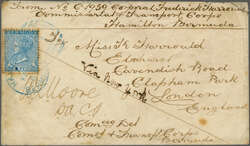 From No C/1939 Corporal Fredrick Harrow
Commissariat & Transport Corps
Hamilton Bermuda
Miss K Harrowell
Elmhurst
Cavendish Road
Clapham Park
London
England
Via New York
Moore
DACG
Transpt Corps
Bermuda